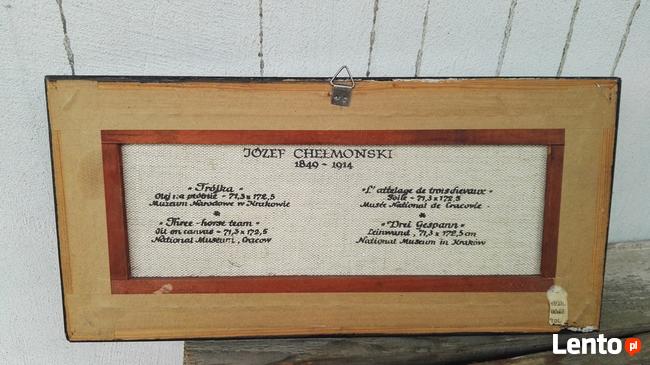 JÓZEF CHEŁMOŃSKI
1849 - 1914
„Trójka"
Olej na płótnie - 71,3 x 172,5
Muzeum Narodowe w Krakowie
*
„Three-horse team"
Oil on canvas - 71,3 x 172,5
National Museum, Cracow
„L'attelage de trois chevaux"
Toile - 71,3 x 172,5
Musée National de Cracovie -
*
„Drei Gespann"
Leinwand, 71,3 x 172,5 cm
National Museum in Kraków
Lento.pl